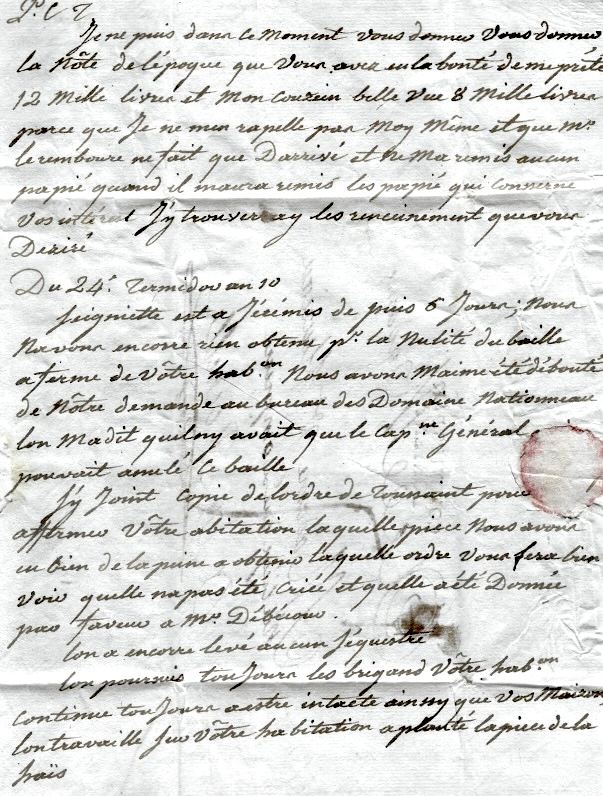 P. C. J
Je ne puis dans ce moment vous donner vous donner
la Nôte de l'époque que vous avez eu la bonté de me prêté
12 Mille livres et mon couzein belle vue 8 Mille livres
parce que Je ne men rapelle pas moy Même et que Mr.
le remboure ne fait que Darrivé et ne Ma remis aucun
papié quand il maura remis les papié qui conserne
vos intérest J'y trouverray les renceinement que vous
Deziré
Du 24e. Termidor an 10
Seigniette est a Jérémis de puis 6 Jours; Nous
Navons encorre rien obtenu pr. la Nulité du baille
a ferme de Vôtre habon Nous avons Maime été débouté
de Nôtre demande au bureau des Domaine Nationneau
lon Madit quilny avait que le Capne Général
pouvait anulé ce baille
J'y Joint copie de lordre de Toussaint pour
affermer Vôtre abitation laquelle piece Nous avons
eu bien de la paine a obtenir laquelle ordre vous fera bien
voir quelle na pas été criée et quelle a été Donnée
par faveur a Mr.
lon a encorre levé aucun Séquestre
lon pournis tou Jours les brigand Vôtre habon
continue tou Jours a estre intacte ainsy que vos Maizons
lon travaille sur Vôtre habitation a planté la piece de la
haïs